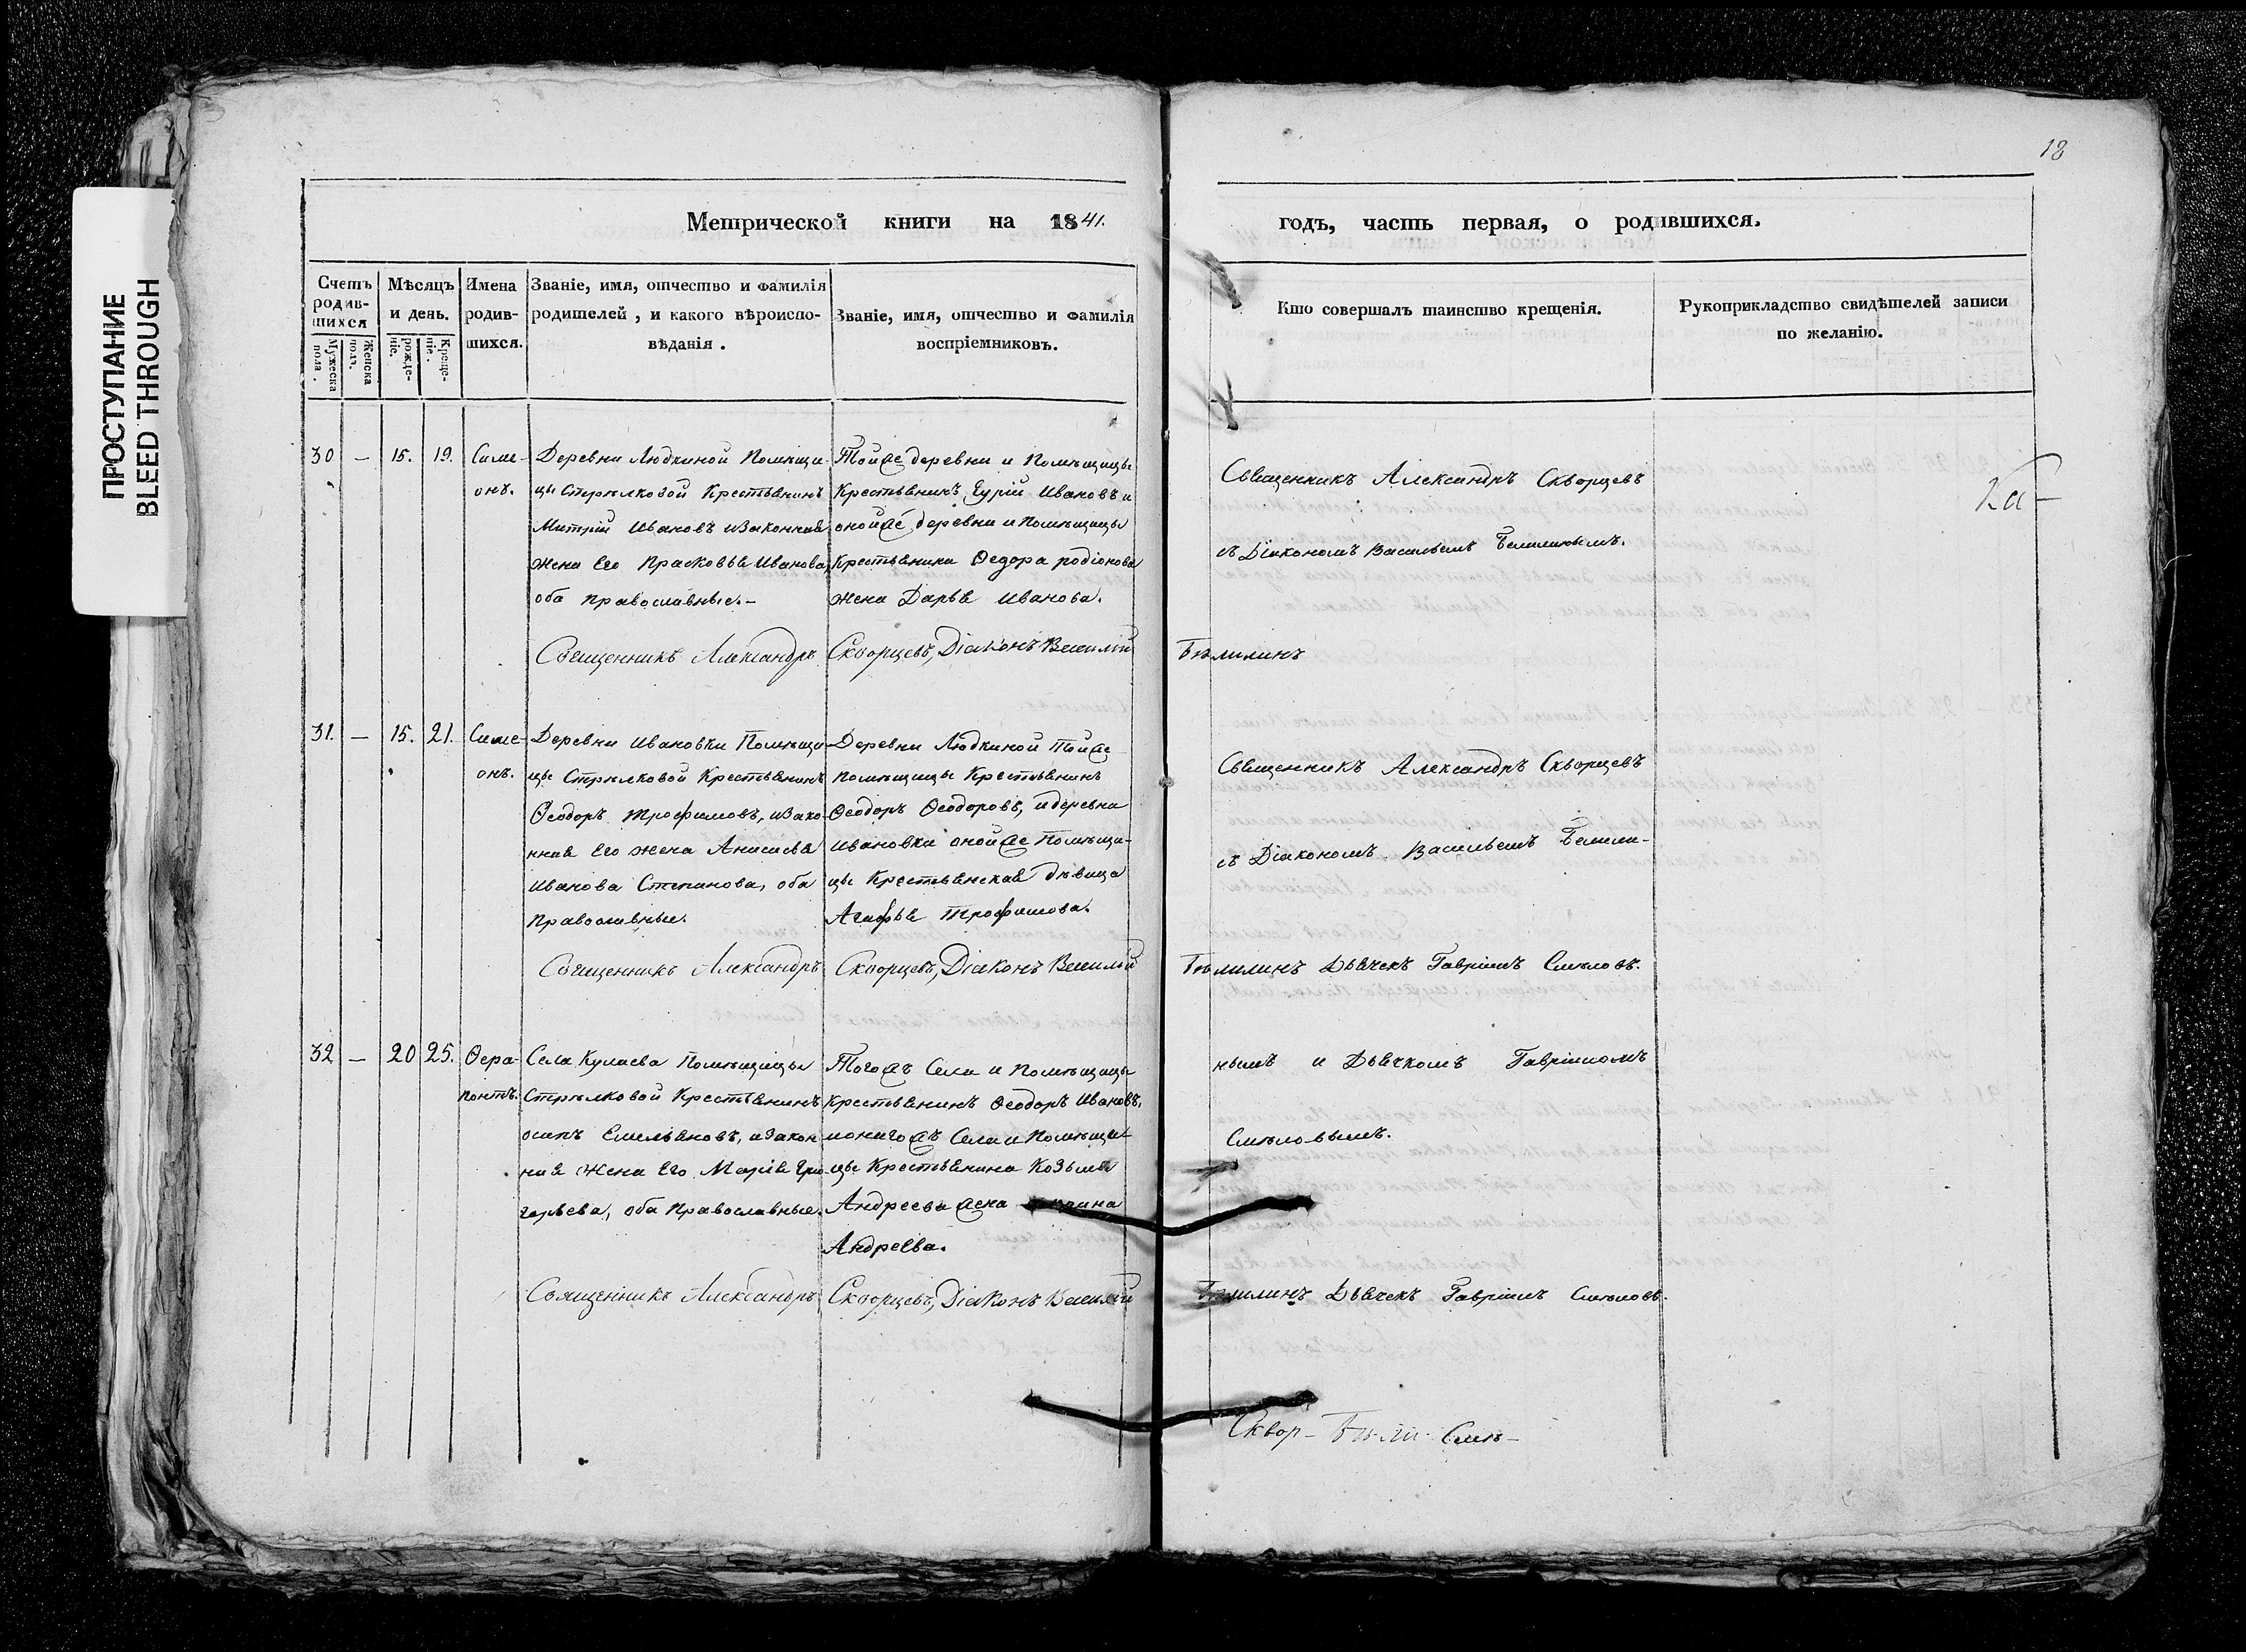 ПРОСТУПАНИЕ
BLEED THROUGH
18
Метрической книги на 1841.
годъ, часть первая, о родившихся.
Счетъ родив-шихся
Мужеска пола.
Женска пола.
Мѣсяцъ и день.
рожде-ніе.
Креще-ніе.
Имена родив-шихся.
Званіе, имя, отчество и фамилія
родителей, и какого вѣроиспо-
вѣданія.
Званіе, имя, отчество и фамилія
воспріемниковъ.
Кто совершалъ таинство крещенія.
Рукоприкладство свидѣтелей записи
по желанію.
30 — 15. 19.
Симе-
онъ.
Деревни Людкиной Помѣщи-
цы Стрѣлковой Крестьянинъ
Митрій Ивановъ и законная
жена Его Прасковья Иванова,
оба православные.-
Тойже деревни и Помѣщицы
Крестьянинъ Гурій Ивановъ и
онойже деревни и Помѣщицы
Крестьянина Ѳедора родіонова
жена Дарья Иванова.
Священникъ Александръ Скворцевъ
съ Діакономъ Васильемъ Белилинымъ.
Ка-
Священникъ Александръ Скворцевъ, Діаконъ Василій Бѣлилинъ
31. — 15. 21.
Симе-
онъ.
Деревни Ивановки Помѣщи-
цы Стрѣлковой Крестьянинъ
Ѳеодоръ Трофимовъ, и зако-
нная Его жена Анисья
Иванова Степанова, оба
Православные.
Деревни Людкиной тойже
помѣщицы Крестьянинъ
Ѳеодоръ Ѳеодоровъ, и деревни
Ивановки онойже Помѣщи-
цы Крестьянская дѣвица
Агафья Трофимова.
Священникъ Александръ Скворцевъ
съ Діакономъ Васильемъ Белили-
Священникъ Александръ Скворцевъ, Діаконъ Василій Бѣлилинъ Дьячекъ Гавріилъ Смѣловъ.
32 — 20 25.
Ѳера-
понтъ.
Села Кулаева Помѣщицы
Стрѣлковой Крестьянинъ
осипъ Емельяновъ, и закон-
ная жена Его Марія Гри-
горьева, оба Православные.
Тогожъ Села и Помѣщицы
Крестьянинъ Ѳеодоръ Ивановъ,
Села и Помѣщи-
цы Крестьянина Козьмы
Андреева жена
Андреева.
нымъ и Дьячкомъ Гавріиломъ
Смѣловымъ.
Священникъ Александръ Скворцевъ, Діаконъ Василій Бѣлилинъ Дьячекъ Гавріилъ Смѣловъ.
Сквор- Бѣли- Смѣ-